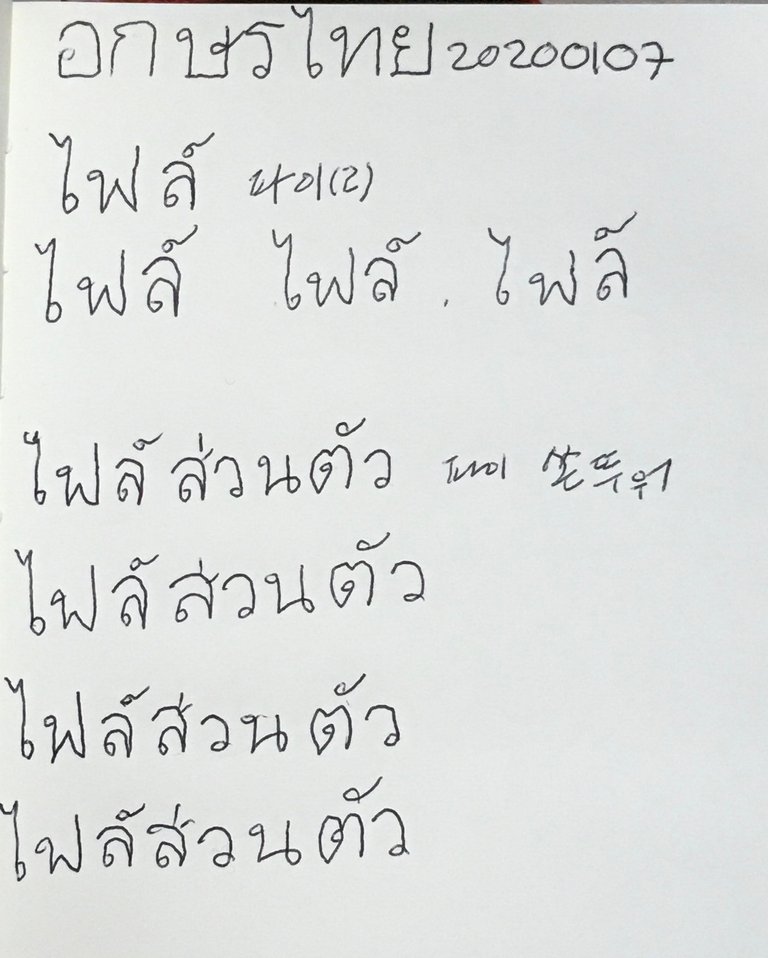 อกษรไทย 20200107
ไฟล์ 파이(ㄹ)
ไฟล์ ไฟล์ . ไฟล์
ไฟล์ส่วนตัว 파이 쑨뚜워
ไฟล์ส่วนตัว
ไฟล์ส่วนตัว
ไฟล์ส่วนตัว